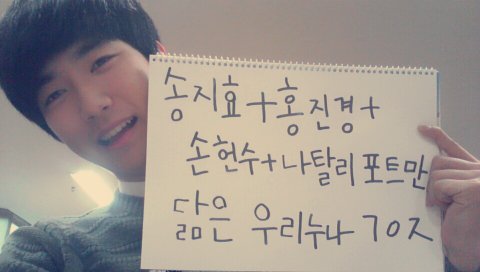 송지효+홍진경+
손헌수+나탈리포트만
닮은 우리누나 70ㅈ